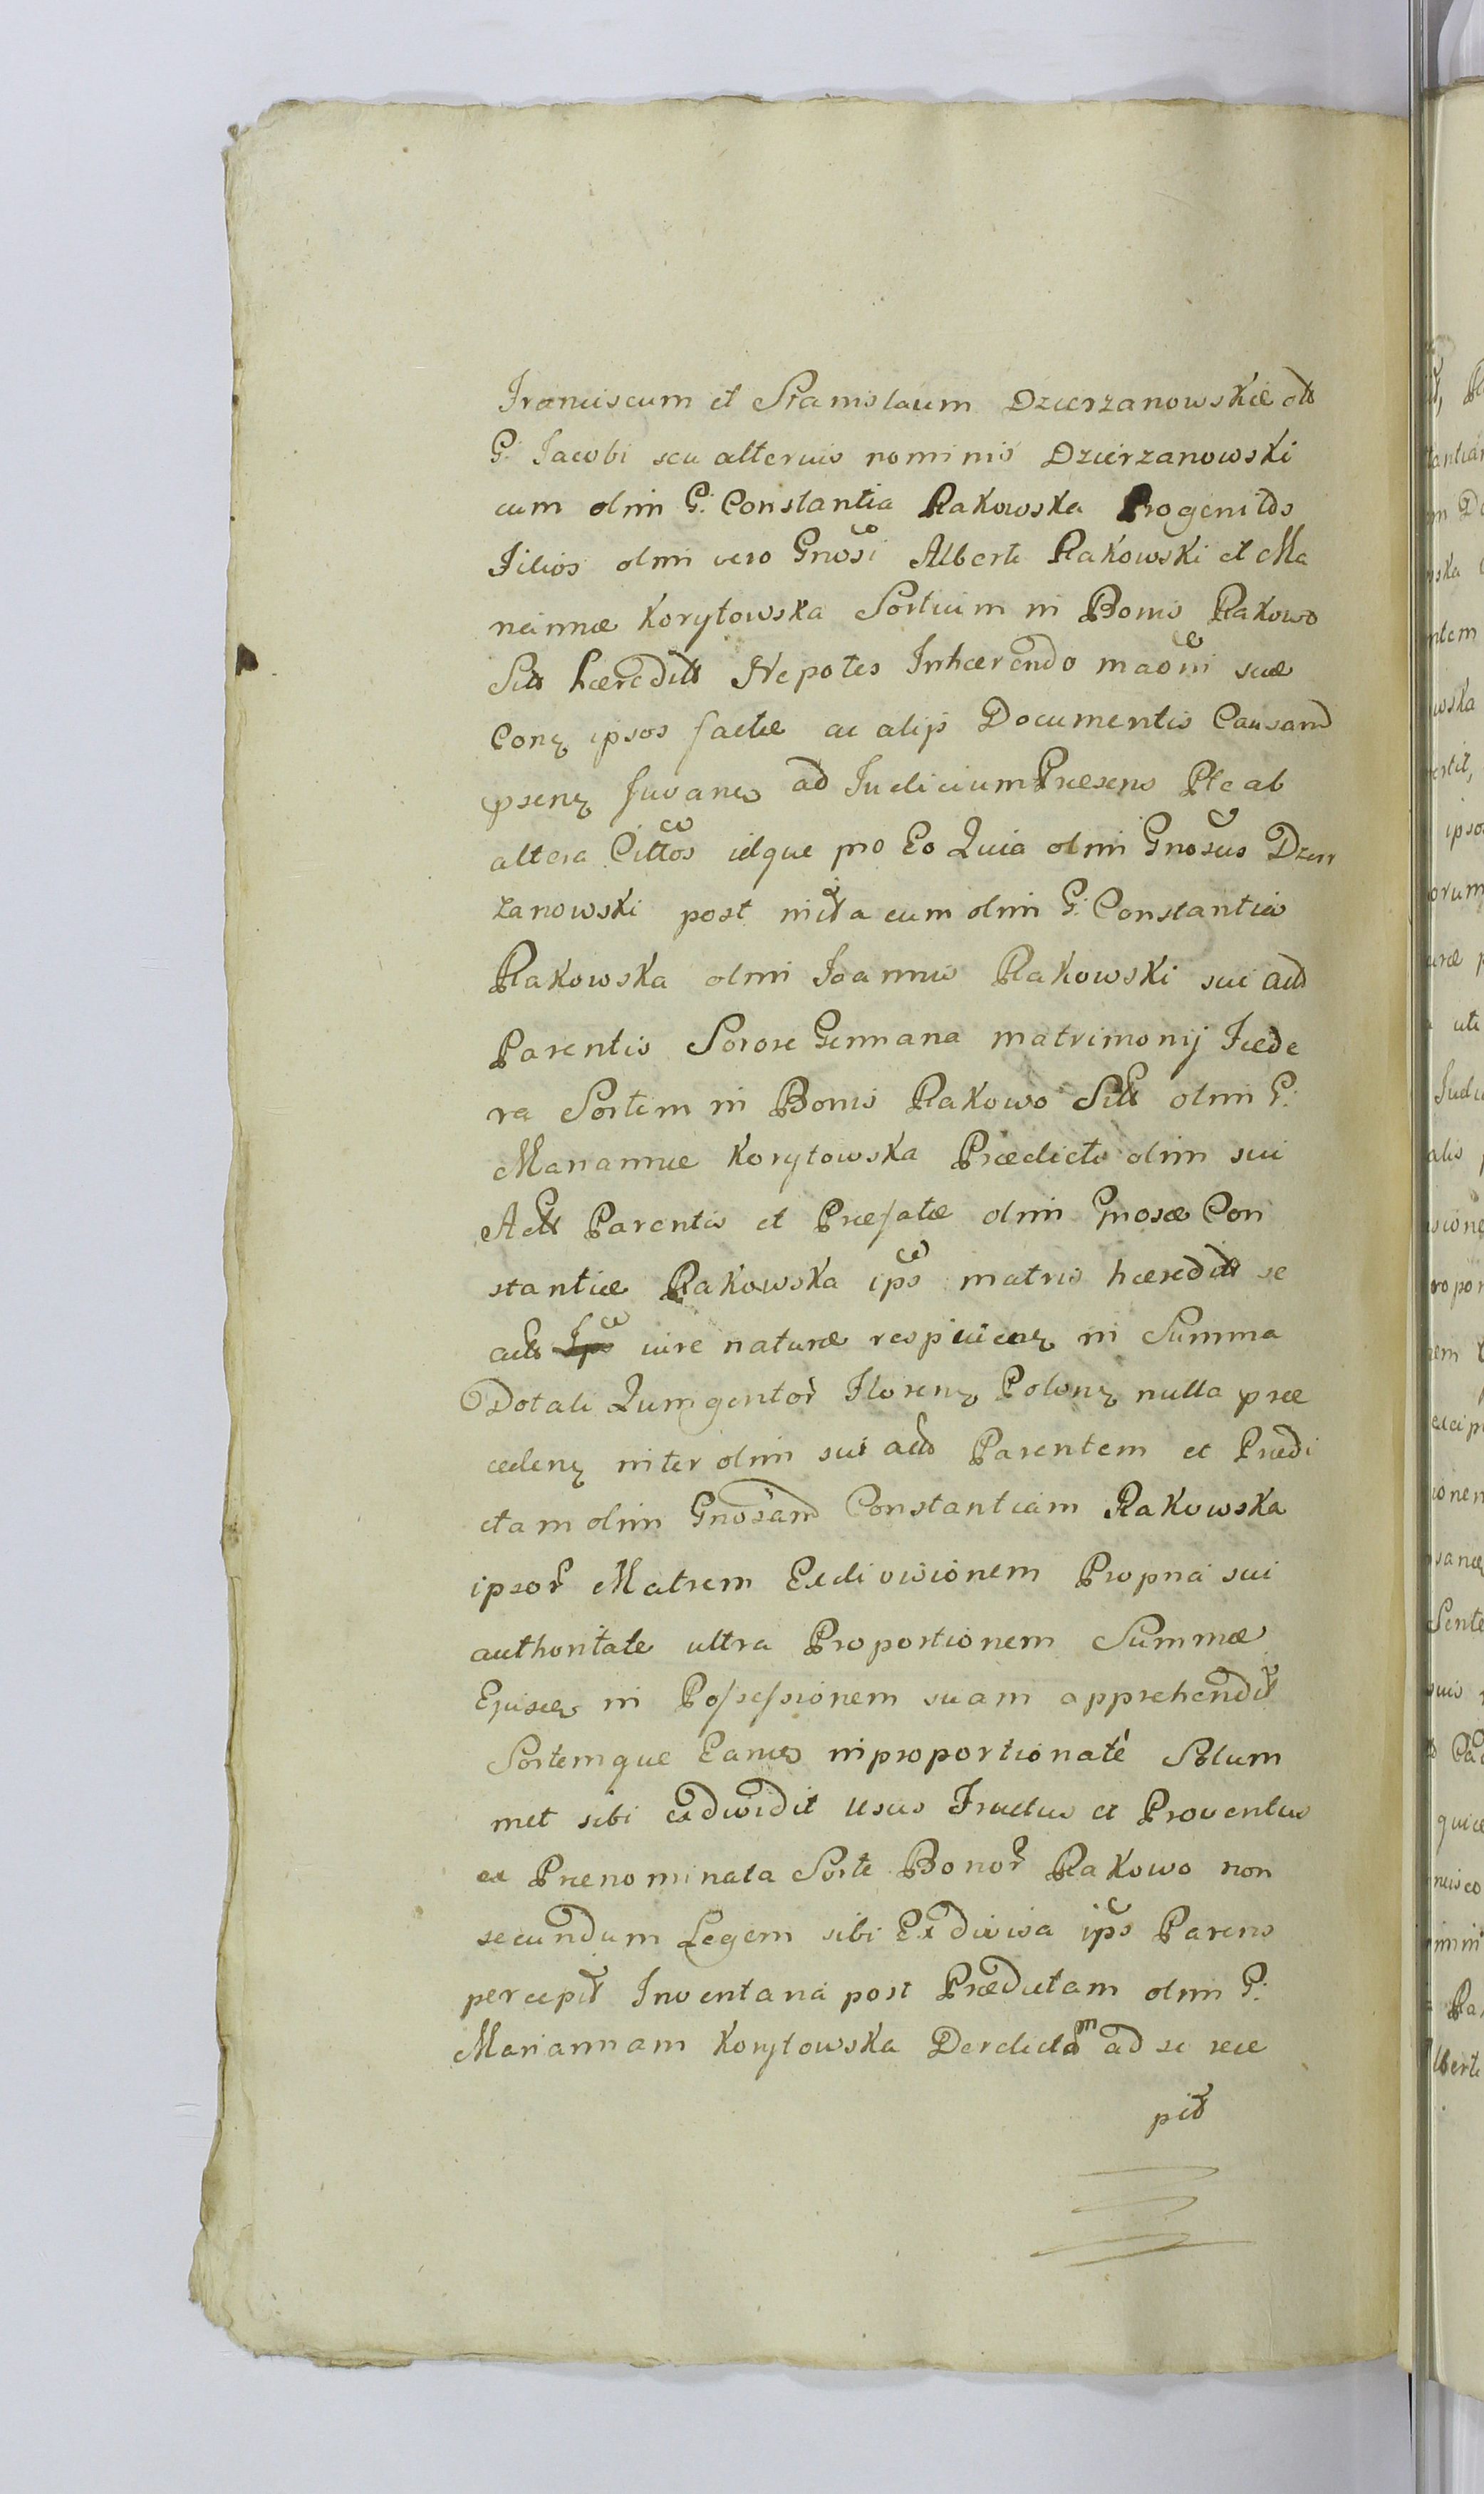 Franciscum et Stanislaum Dzierzanowskie olt
G. Jacobi seu alterius nominis Dzierzanowski
cum olim G. Constantia Rakowska Progenitos
Filios olim vero Gnosi Alberti Rakowski et Ma
riannæ Korytowska Sortium in Bonis Rakowo
Sitt hæreditt Nepotes Inhærendo maõni suæ
Conꝫ ipsos factæ ac alijs Documentis Causam
psenꝫ Juvanꝫ ad Judicium Præsens Ple ab
altera Cittos idque pro Eo Quia olim Gnosus Dzier
zanowski post inita cum olim G. Constantia
Rakowska olim Joannis Rakowski sui actt
Parentis Sorore Germana matrimonij Fæde
ra Sortem in Bonis Rakowo Sitt olim G.
Mariannæ Korytowska Prædicti olim sui
Actt Parentis et Præfatæ olim Gnosæ Con
stantiæ Rakowska ips matris hæreditt se
actt iure naturæ respicienꝫ in Summa
Dotali Quingentor Florenꝫ Polonꝫ nulla præ
cedenꝫ inter olim sui actt Parentem et Prædi
ctam olim Gnosam Constantiam Rakowska
ipsor Matrem Exdivisionem Propria sui
authoritate ultra Proportionem Summæ
Ejusꝫ in Possessionem suam apprehendit
Sortemque Eamꝫ inproportionaté Solum
met sibi exdividit Usus Fructus et Proventus
ex Prænominata Sorte Bonor Rakowo non
secundum Legem sibi Exdivisa ips Parens
percepit Inventaria post Prædictam olim G.
Mariannam Korytowska Derelictam ad se rece
pit